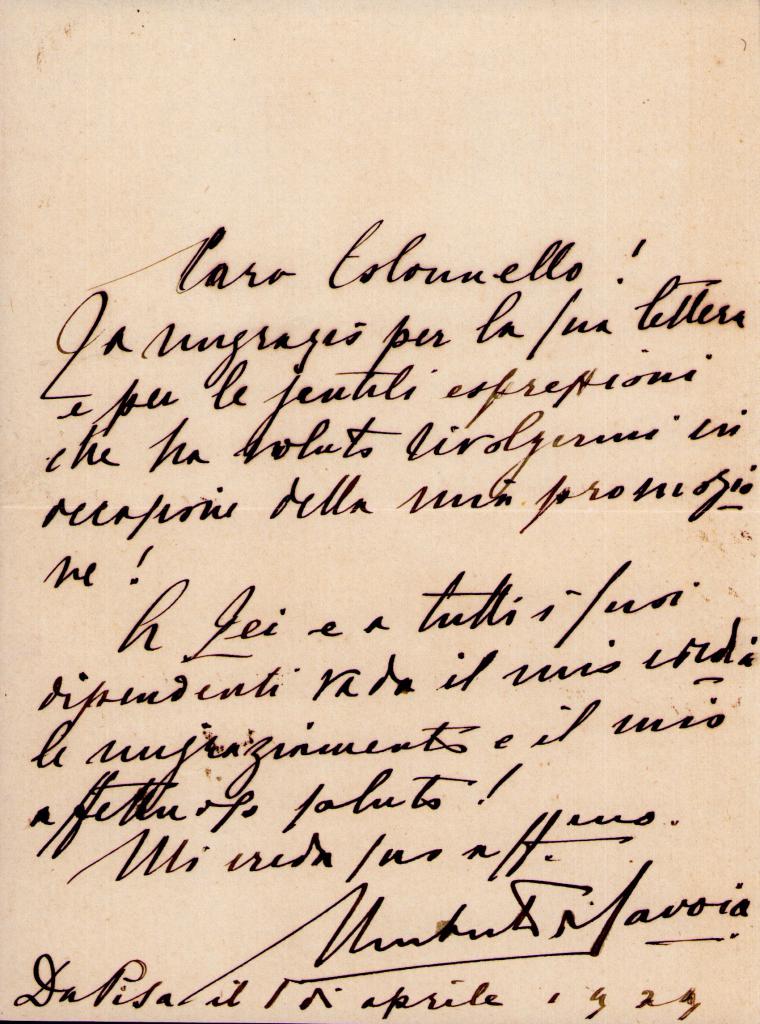 Caro Colonnello!
La ringrazio per la sua lettera
e per le gentili espressioni
che ha voluto rivolgermi in
occasione della mia promozio
ne!
A Lei e a tutti i suoi
dipendenti vada il mio cordia
le ringraziamento e il mio
affettuoso saluto!
Mi creda suo aff.mo.
Umberto di Savoia
Da Pisa il 1 di aprile 1929